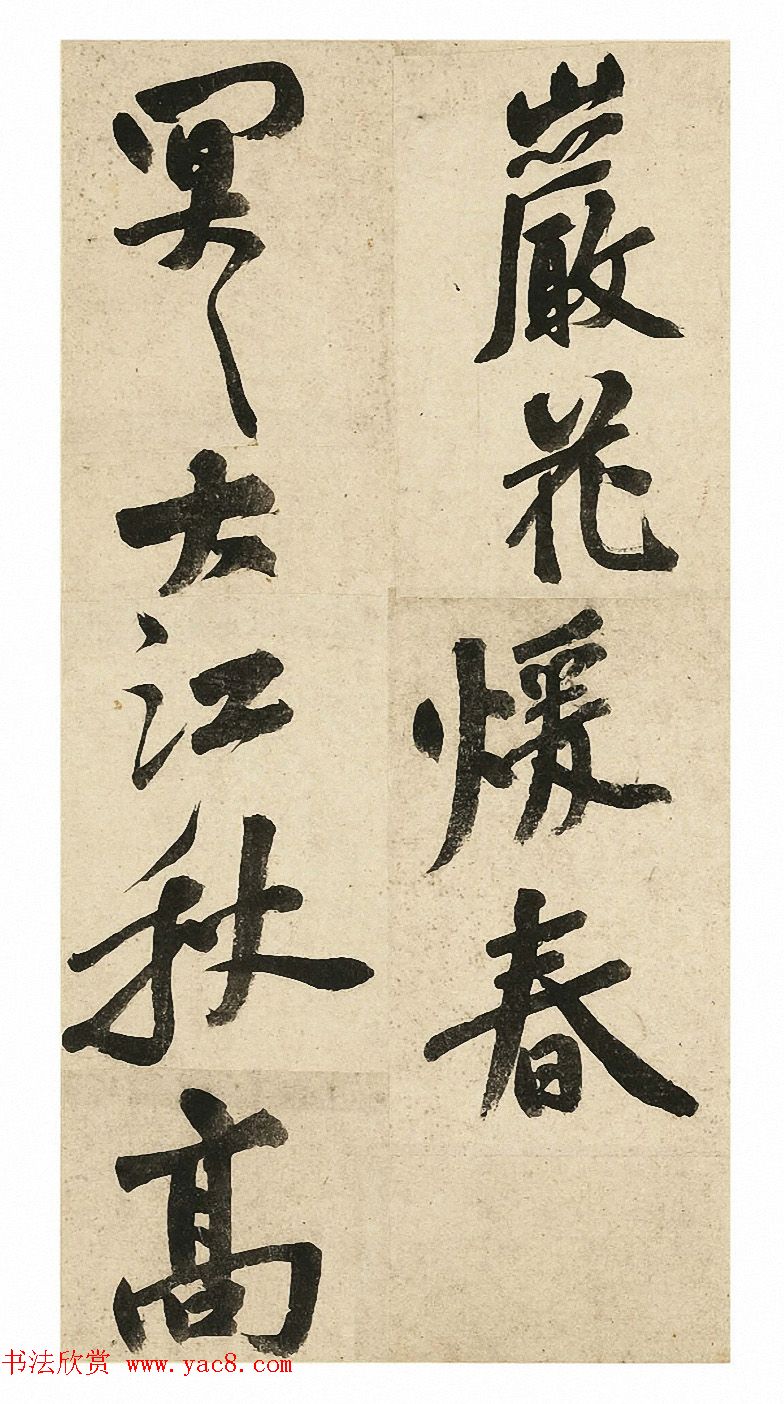 巖花煖春
冥〻大江秋高
书法欣赏 www.yac8.com